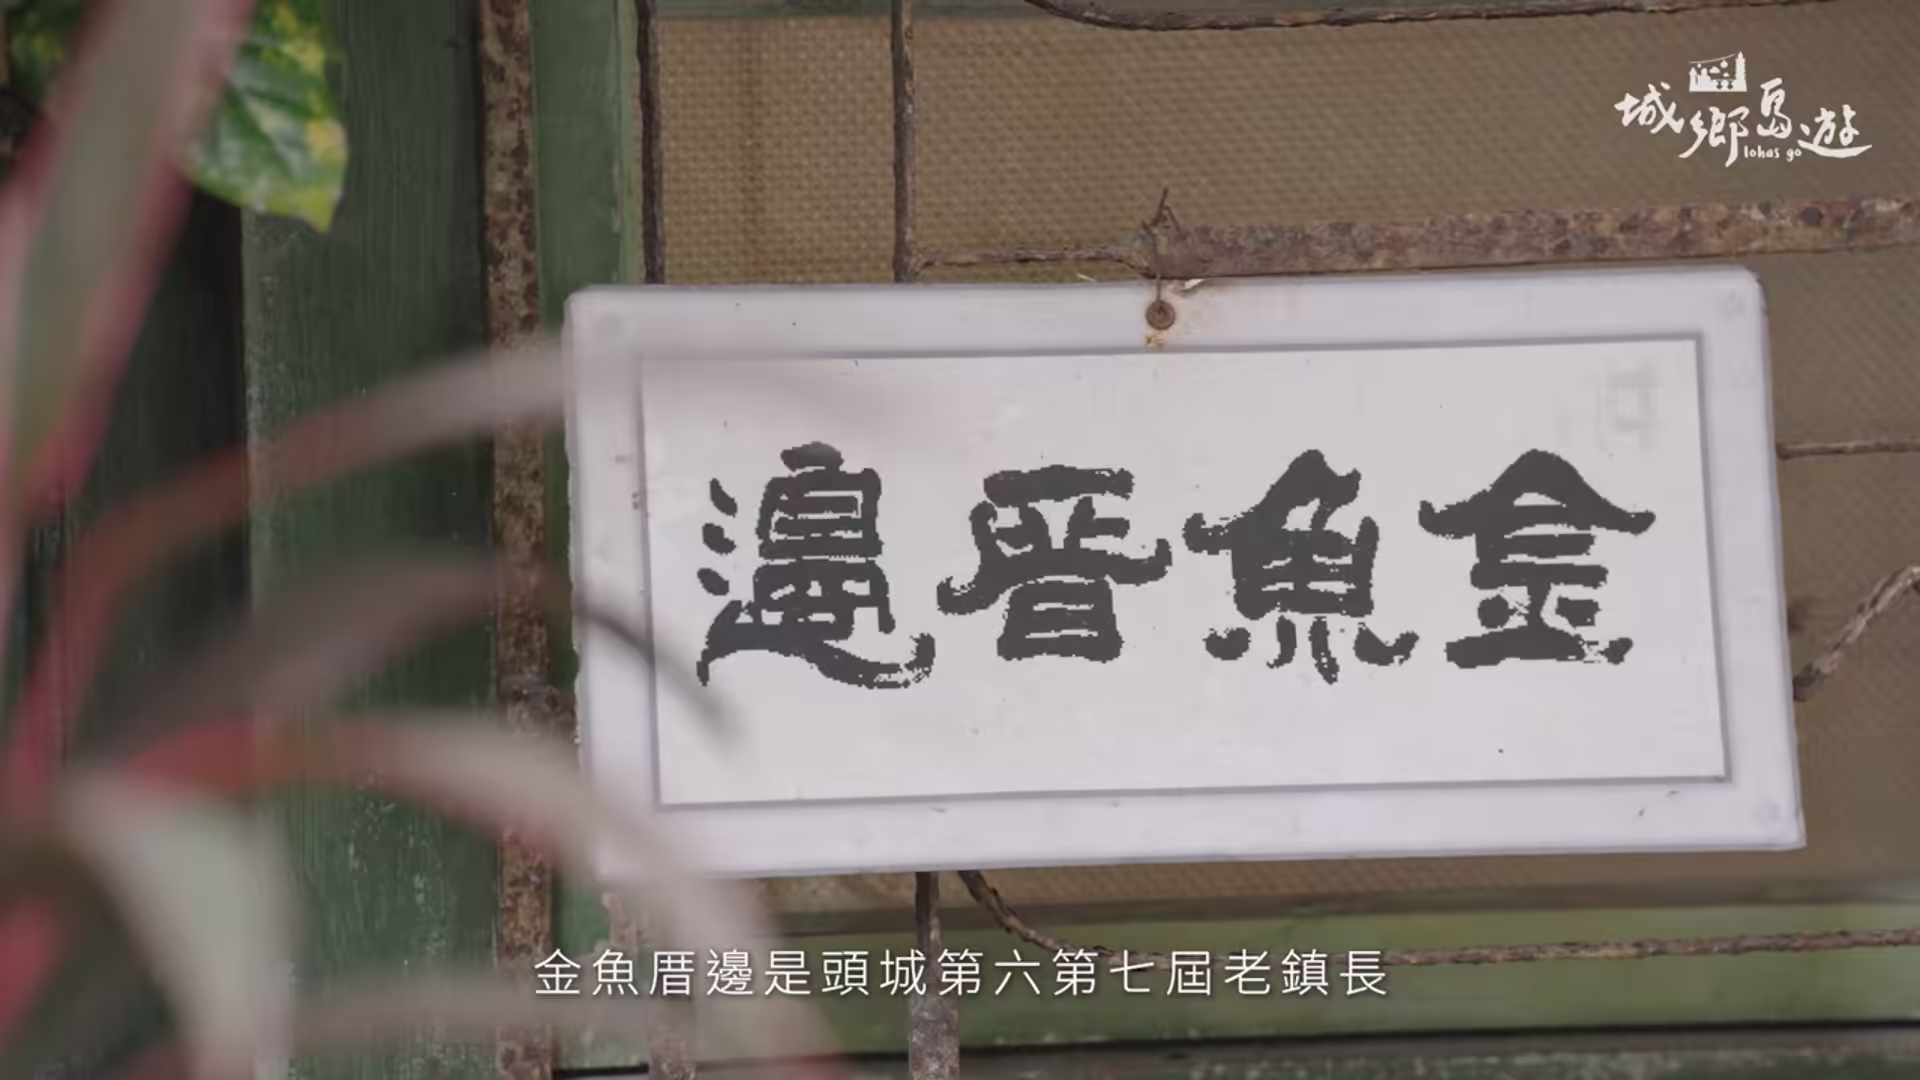 城鄉島遊
lohas go
金魚厝邊
金魚厝邊是頭城第六第七屆老鎮長